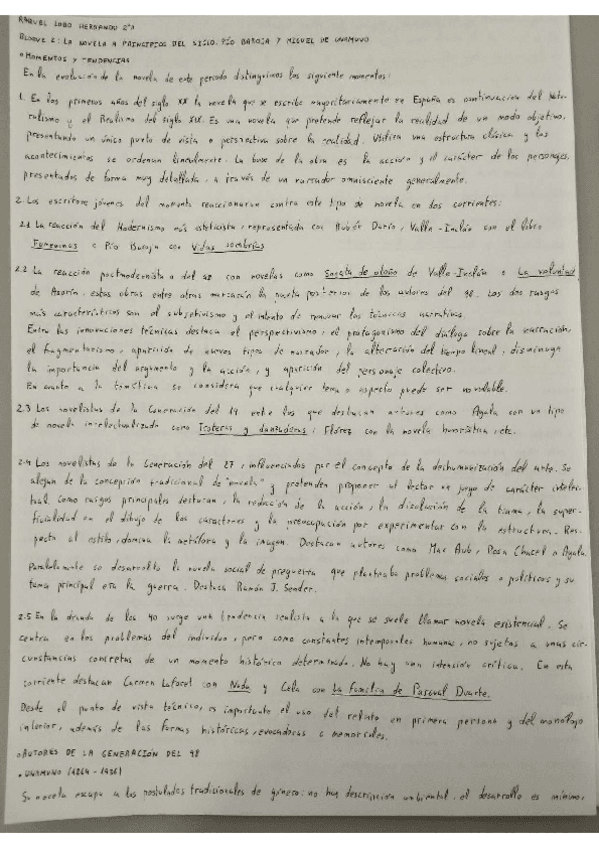 RAQUEL LOBO HERNANDO 2ºA
BLOQUE 2: LA NOVELA A PRINCIPIOS DEL SIGLO. PÍO BAROJA Y MIGUEL DE UNAMUNO
• MOMENTOS Y TENDENCIAS
En la evolución de la novela de este periodo distinguimos los siguiente momentos:
1. En los primeros años del siglo XX la novela que se escribe mayoritariamente en España es continuación del Natu-
ralismo y el Realismo del siglo XIX. Es una novela que pretende reflejar la realidad de un modo objetivo,
presentando un único punto de vista o perspectiva sobre la realidad. Utiliza una estructura clásica y los
acontecimientos se ordenan linealmente. La base de la obra es la acción y el carácter de los personajes,
presentados de forma muy detallada, a través de un narrador omnisciente generalmente.
2. Los escritores jóvenes del momento reaccionaron contra este tipo de novela en dos corrientes:
2.1 La reacción del Modernismo más esteticista, representada con Rubén Darío, Valle-Inclán con el libro
Femeninas o Pío Baroja con Vidas sombrías
2.2 La reacción postmodernista o del 98 con novelas como Sonata de otoño de Valle-Inclán o La voluntad
de Azorín. Estas obras entre otras marcarán la pauta posterior de los autores del 98. Los dos rasgos
más característicos son el subjetivismo y el intento de renovar las técnicas narrativas.
Entre las innovaciones técnicas destaca el perspectivismo, el protagonismo del diálogo sobre la narración,
el fragmentarismo, aparición de nuevos tipos de narrador, la alteración del tiempo lineal, disminuye
la importancia del argumento y la acción, y aparición del personaje colectivo.
En cuanto a la temática se considera que cualquier tema o aspecto puede ser novelable.
2.3 Los novelistas de la Generación del 14 entre los que destacan autores como Ayala con un tipo
de novela intelectualizada como Troteras y danzaderas, Flórez con la novela humorística, etc.
2.4 Los novelistas de la Generación del 27, influenciados por el concepto de la deshumanización del arte. Se
alejan de la concepción tradicional de "novela" y pretenden proponer al lector un juego de carácter intelec-
tual. Como rasgos principales destacan, la reducción de la acción, la disolución de la trama, la super-
ficialidad en el dibujo de los caracteres y la preocupación por experimentar con la estructura. Res-
pecto al estilo, domina la metáfora y la imagen. Destacan autores como Max Aub, Rosa Chacel o Ayala.
Paralelamente se desarrolló la novela social de preguerra que planteaba problemas sociales o políticos y su
tema principal era la guerra. Destaca Ramón J. Sender.
2.5 En la década de los 40 surge una tendencia realista a la que se suele llamar novela existencial. Se
centra en los problemas del individuo, pero como constantes intemporales humanas, no sujetas a unas cir-
cunstancias concretas de un momento histórico determinado. No hay una intención crítica. En esta
corriente destacan Carmen Laforet con Nada y Cela con La familia de Pascual Duarte.
Desde el punto de vista técnico, es importante el uso del relato en primera persona y del monólogo
interior, además de las formas históricas, evocadoras o
• AUTORES DE LA GENERACIÓN DEL 98
• UNAMUNO (1864-1936)
Su novela escapa a los postulados tradicionales de género: no hay descripción ambiental, el desarrollo es mínimo,